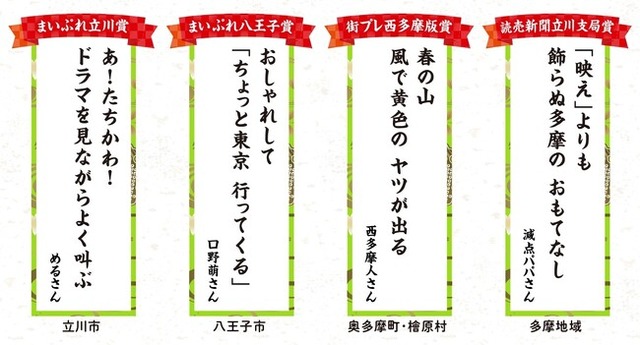 まいぷれ立川賞
あ!たちかわ!
ドラマを見ながらよく叫ぶ
めるさん
立川市
まいぷれ八王子賞
おしゃれして
「ちょっと東京 行ってくる」
口野萌さん
八王子市
街プレ西多摩版賞
春の山
風で黄色の ヤツが出る
西多摩人さん
奥多摩町・檜原村
読売新聞立川支局賞
「映え」よりも
飾らぬ多摩の おもてなし
減点パパさん
多摩地域